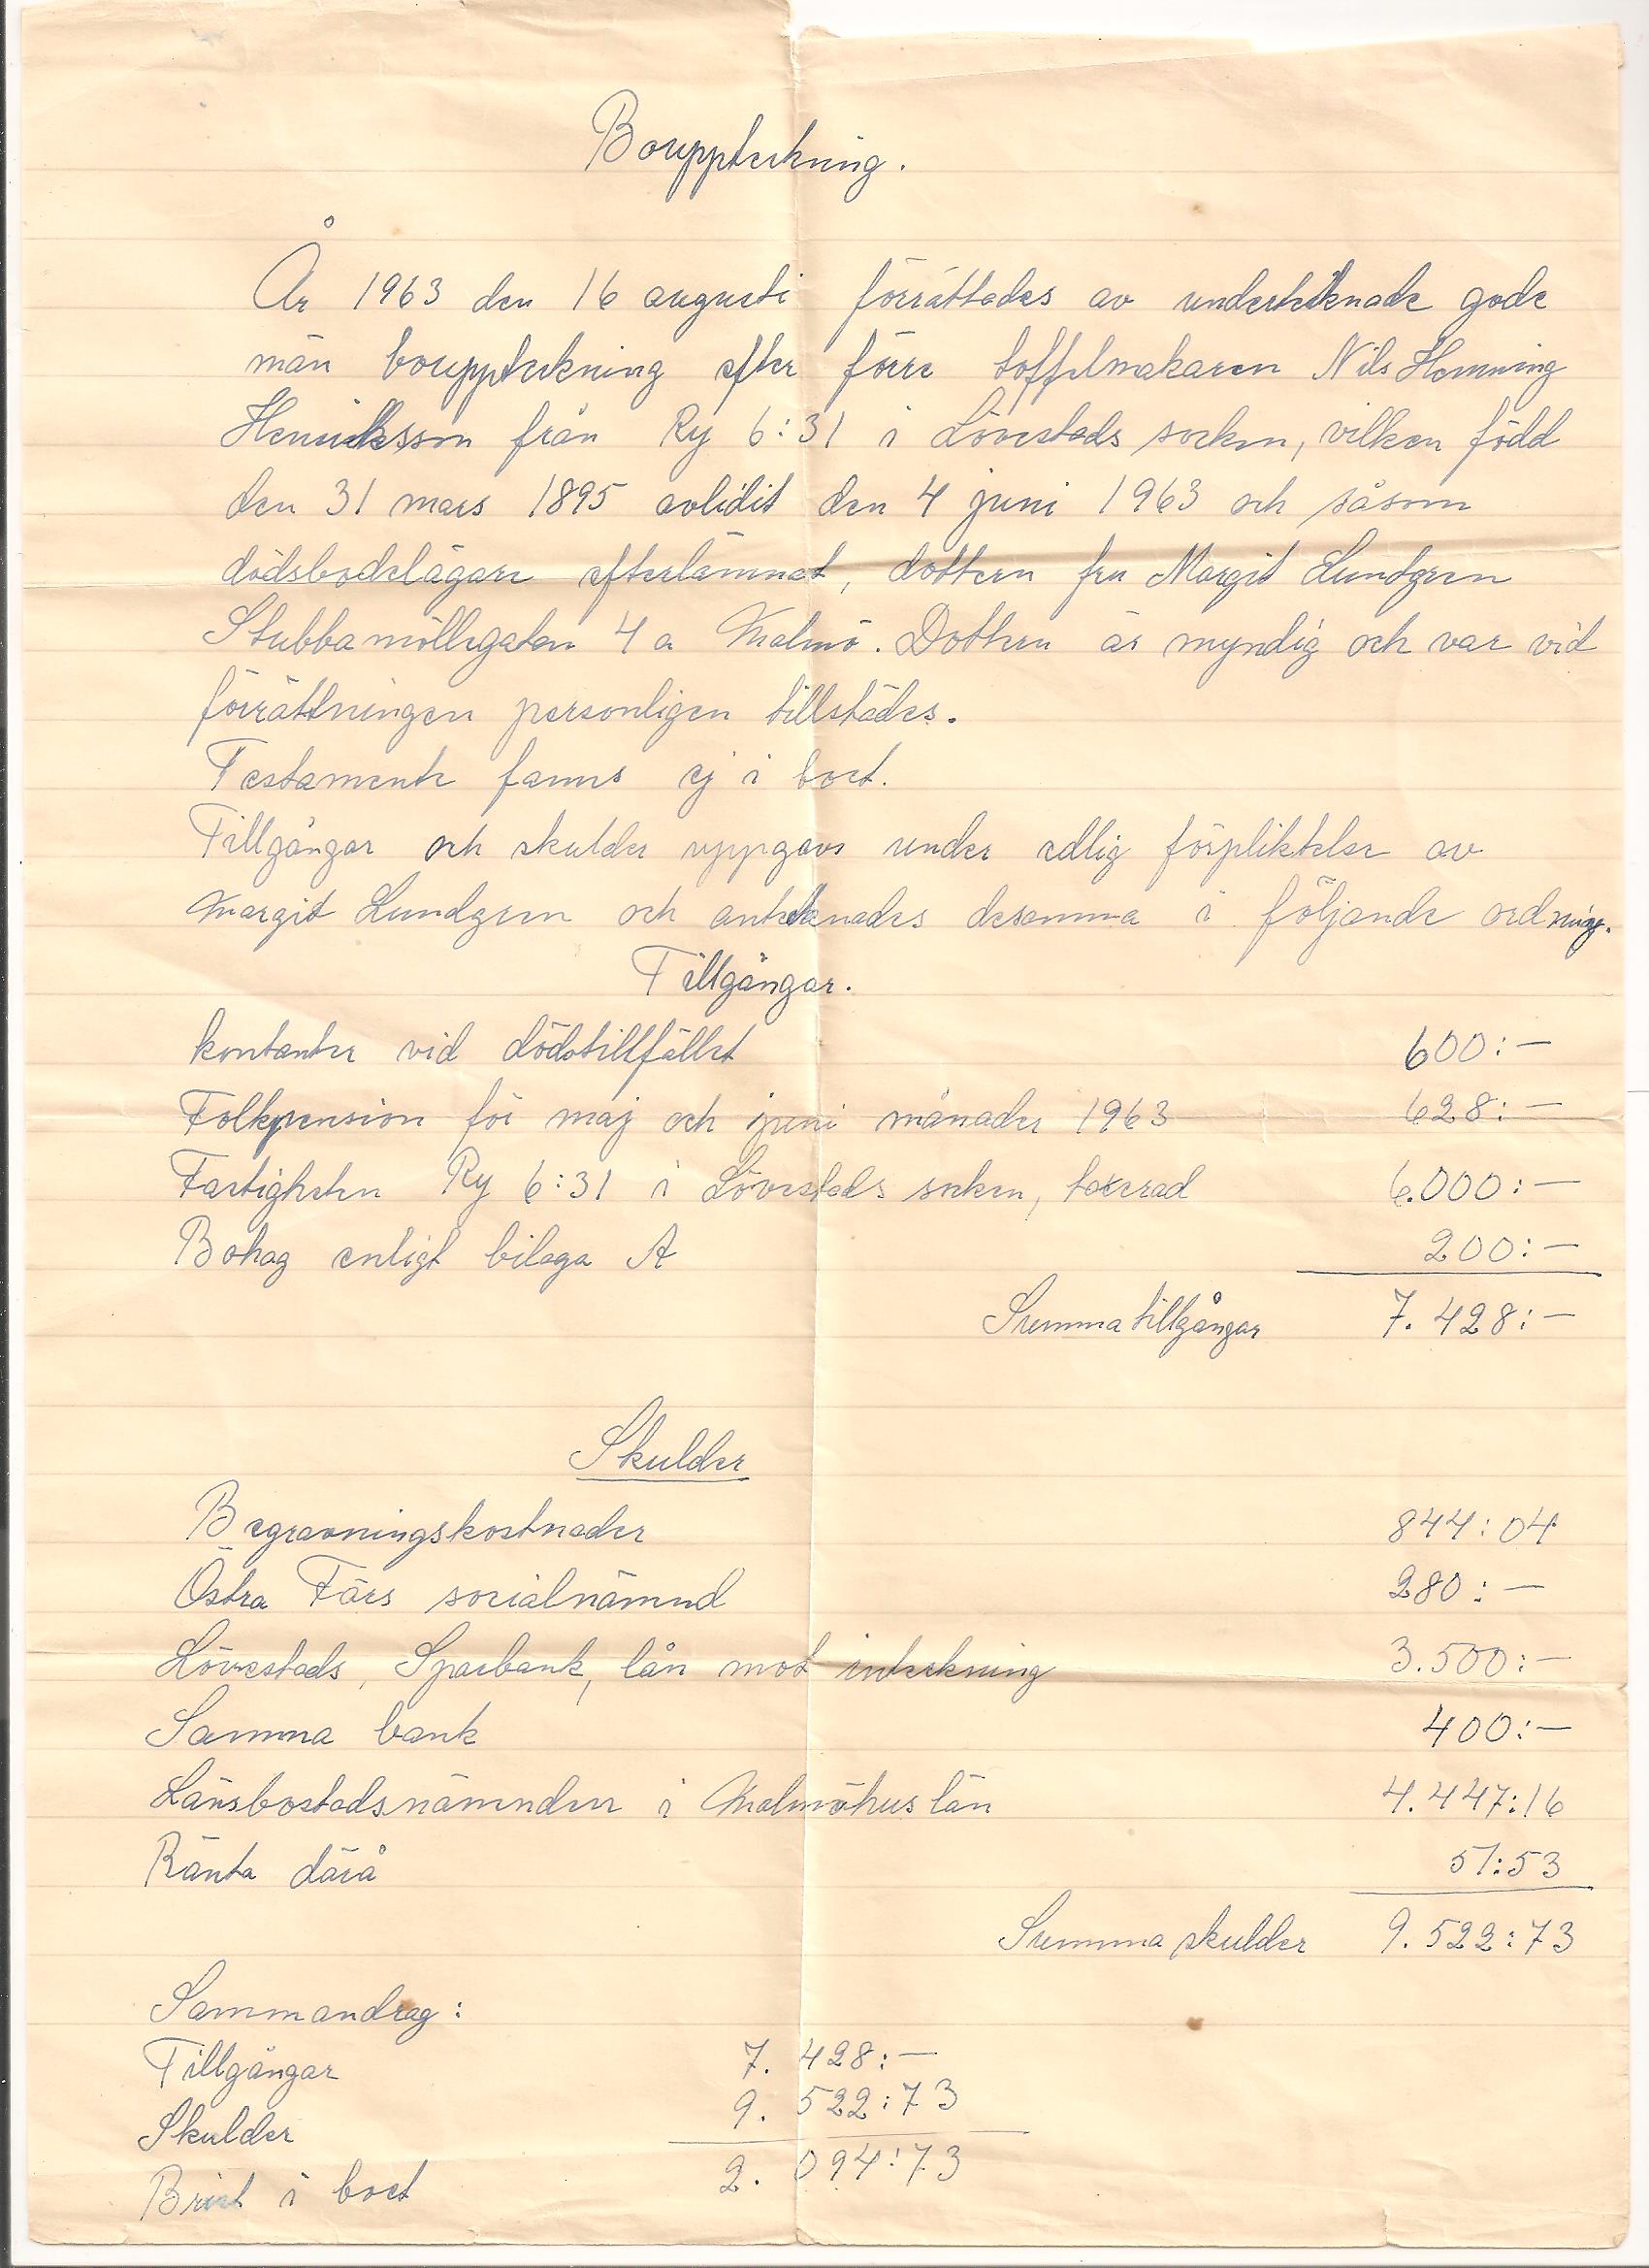 Bouppteckning.
År 1963 den 16 augusti förrättades av undertecknade gode
män bouppteckning efter förre toffelmakaren Nils Henning
Henriksson från Ry 6:31 i Lövestads socken, vilken född
den 31 mars 1895 avlidit den 4 juni 1963 och såsom
dödsbodelägare efterlämnat, dottern fru Margit Lundgren
Stubbamöllegatan 4 a Malmö. Dottern är myndig och var vid
förrättningen personligen tillstädes.
Testamente fanns ej i boet.
Tillgångar och skulder uppgavs under edlig förpliktelse av
Margit Lundgren och antecknades desamma i följande ordning.
Tillgångar.
kontanter vid dödstillfället 600:—
Folkpension för maj och juni månader 1963 628:—
Fastigheten Ry 6:31 i Lövestads socken, taxerad 6.000:—
Bohag enligt bilaga A 200:—
Summa tillgångar 7.428:—
Skulder
Begravningskostnader 844:04
Östra Färs socialnämnd 280:—
Lövestads, Sparbank, lån mot inteckning 3.500:—
Samma bank 400:—
Länsbostadsnämnden i Malmöhus län 4.447:16
Ränta därå 51:53
Summa skulder 9.522:73
Sammandrag:
Tillgångar 7.428:—
Skulder 9.522:73
Brist i boet 2.094:73